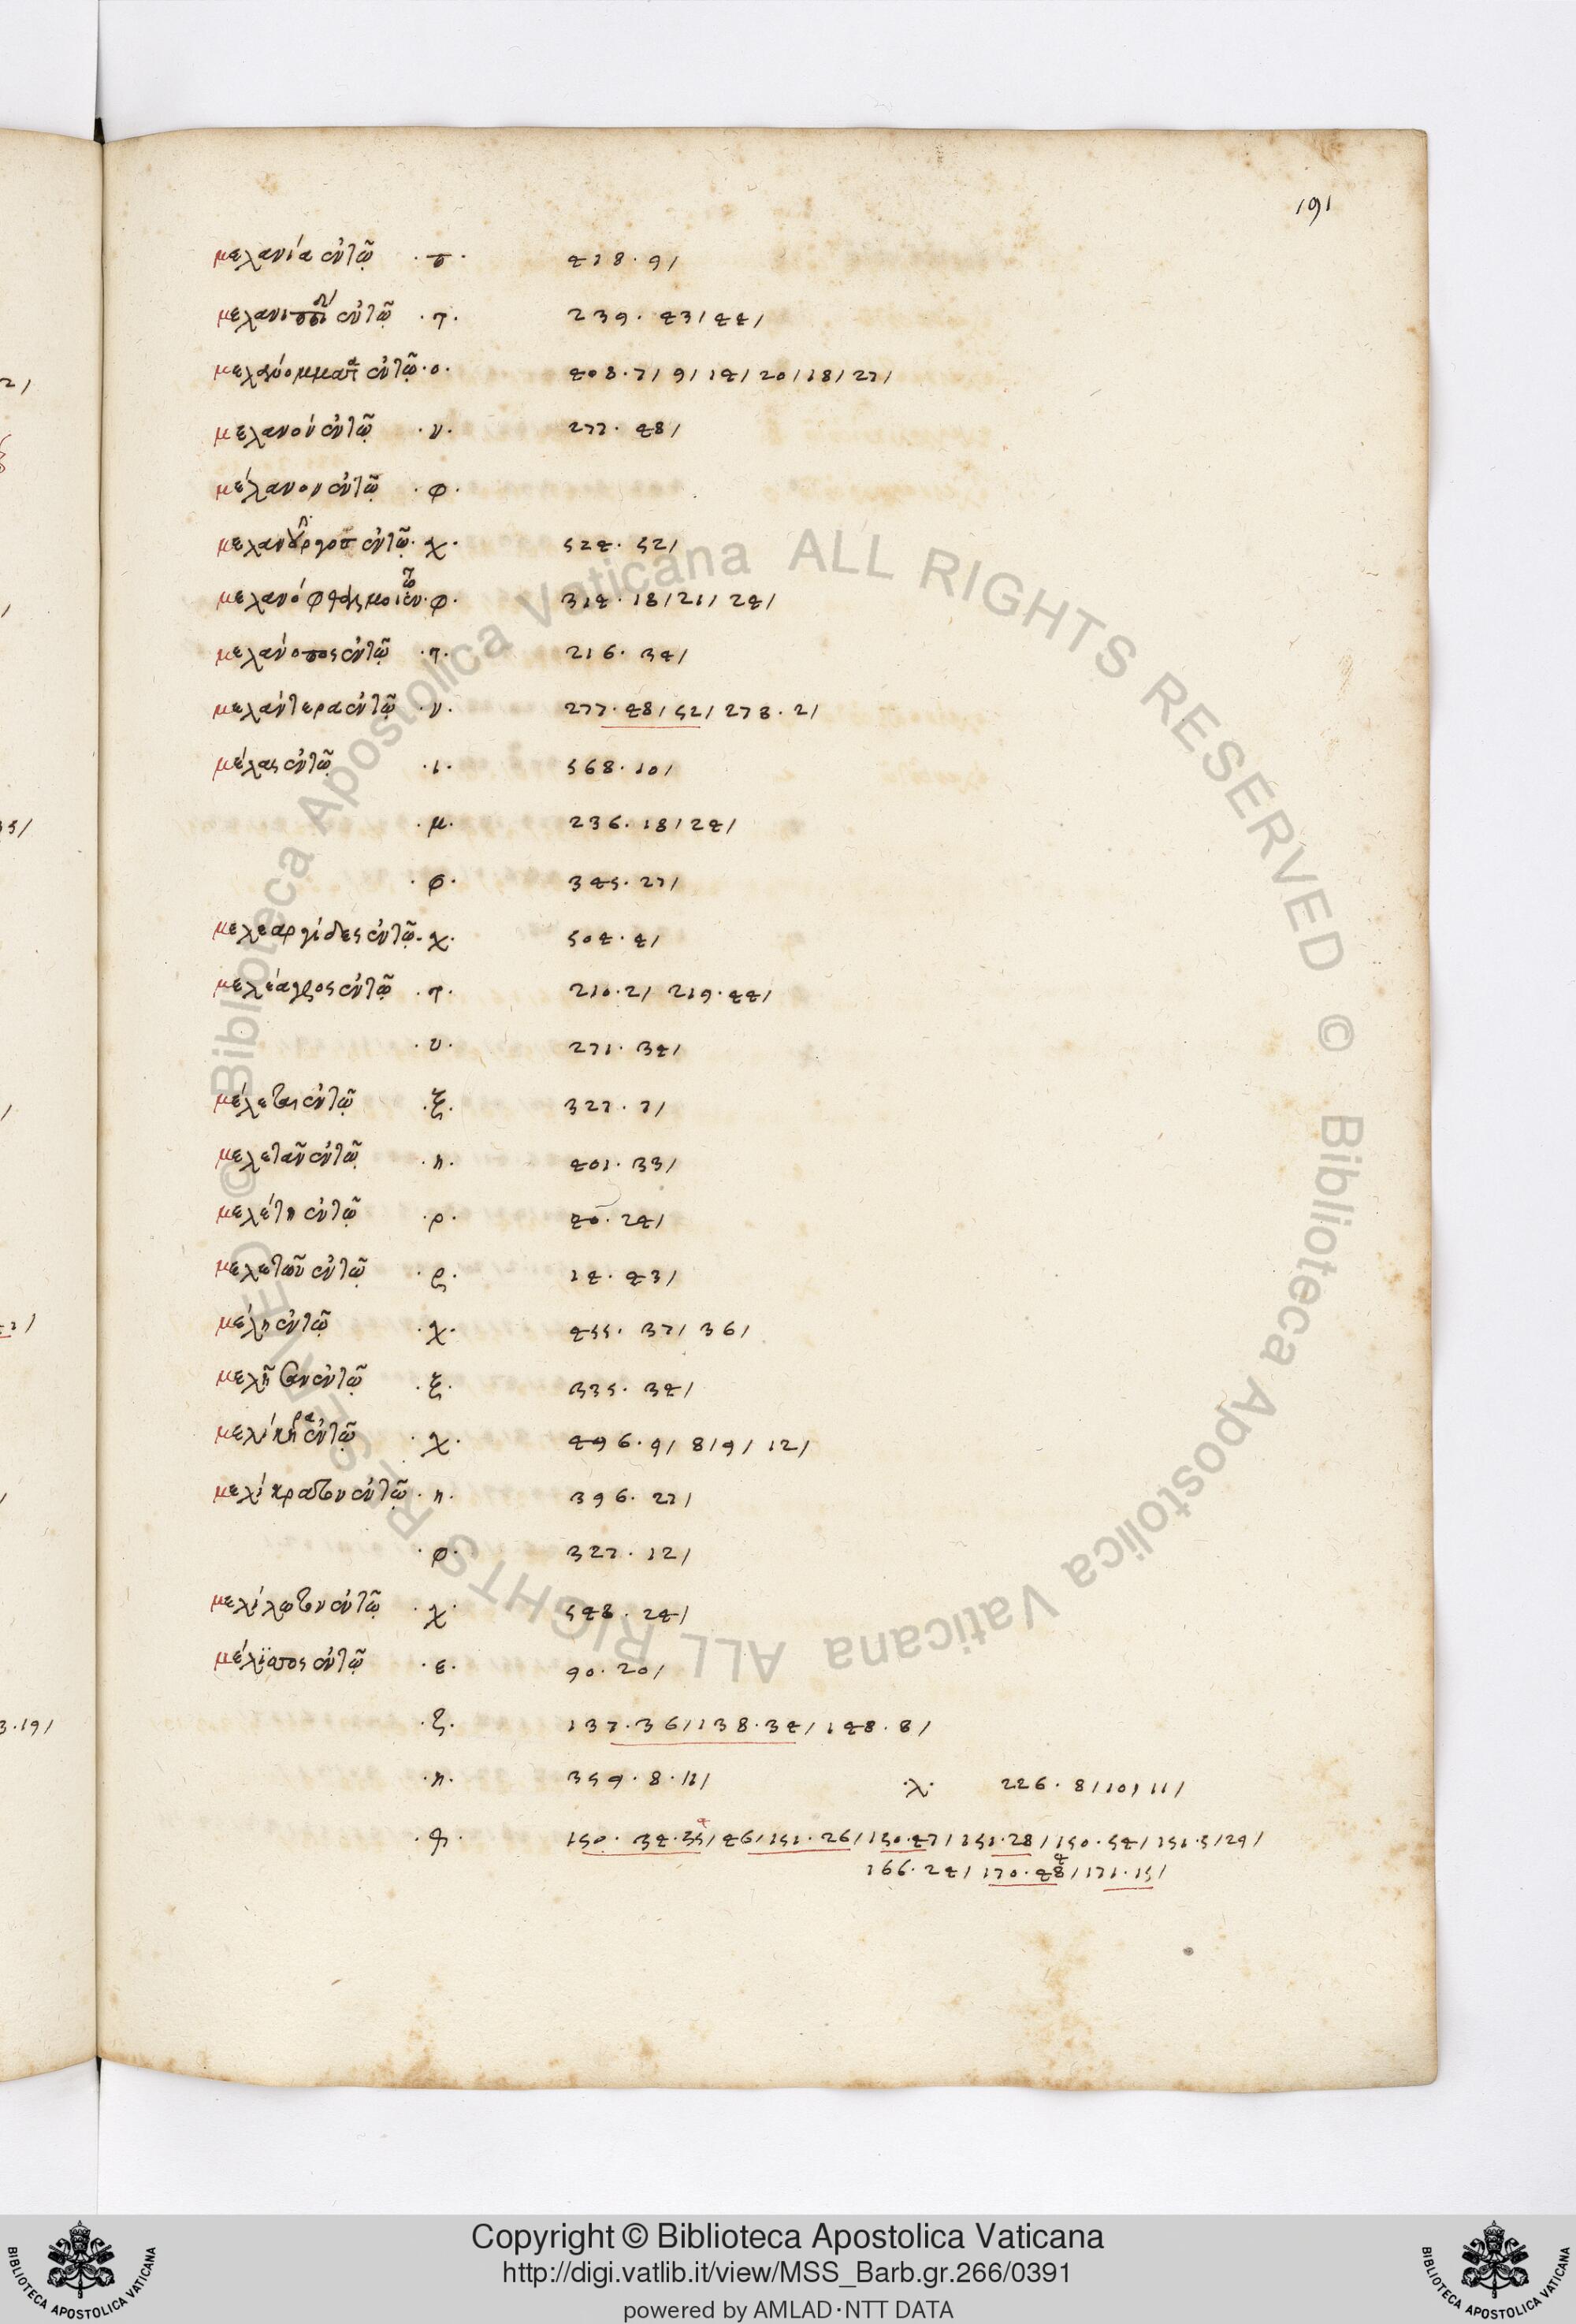 191
μελανία ἐν τῷ · π · 418 · 9/
μελανιππ ἐν τῷ · τ · 239 · 43/44/
μελανόμματα ἐν τῷ · ο · 408 · 7/ 9/ 14/ 20/ 18/ 27/
μελανὸν ἐν τῷ · ν · 277 · 48/
μέλανον ἐν τῷ · φ ·
ἐν τῷ · χ · 524 · 52/
μελανόφθαλμοι ἐν τῷ · φ · 314 · 18/21/ 24/
μελάνοπος ἐν τῷ · τ · 216 · 34/
μελάντερα ἐν τῷ · ν · 277 · 48/52/ 278 · 2/
μέλας ἐν τῷ · ι · 568 · 10/
· μ · 236 · 18/24/
· φ · 345 · 27/
μελεαργίδες ἐν τῷ · χ · 504 · 4/
μελέαγρος ἐν τῷ · τ · 210 · 2/ 219 · 44/
· υ · 271 · 34/
ἐν τῷ · ξ · 327 · 7/
μελετᾶν ἐν τῷ · η · 401 · 33/
μελέτη ἐν τῷ · ρ · 40 · 24/
μελετῶν ἐν τῷ · ς · 14 · 43/
μέλη ἐν τῷ · χ · 455 · 37/ 36/
ἐν τῷ · ξ · 335 · 34/
μελίκηρα ἐν τῷ · χ · 496 · 9/ 8/9/ 12/
μελίκρατον ἐν τῷ · η · 396 · 27/
· φ · 327 · 12/
μελίλωτον ἐν τῷ · χ · 548 · 24/
ἐν τῷ · ε · 90 · 20/
· ζ · 137 · 36/138 · 34/ 148 · 8/
· η · 359 · 8 · 11/ · λ · 226 · 8/10/ 11/
150 · 34 · 35/ 46/151 · 26/ 150 · 47/ 151 · 28/ 150 · 54/ 151 · 5/29/
166 · 24/ 170 · 48/ 171 · 15/
2/
35/
3 · 19/
© Biblioteca Apostolica Vaticana ALL RIGHTS RESERVED © Biblioteca Apostolica Vaticana ALL RIGHTS RESERVED
Copyright © Biblioteca Apostolica Vaticana
http://digi.vatlib.it/view/MSS_Barb.gr.266/0391
powered by AMLAD·NTT DATA
BIBLIOTECA APOSTOLICA VATICANA
BIBLIOTECA APOSTOLICA VATICANA